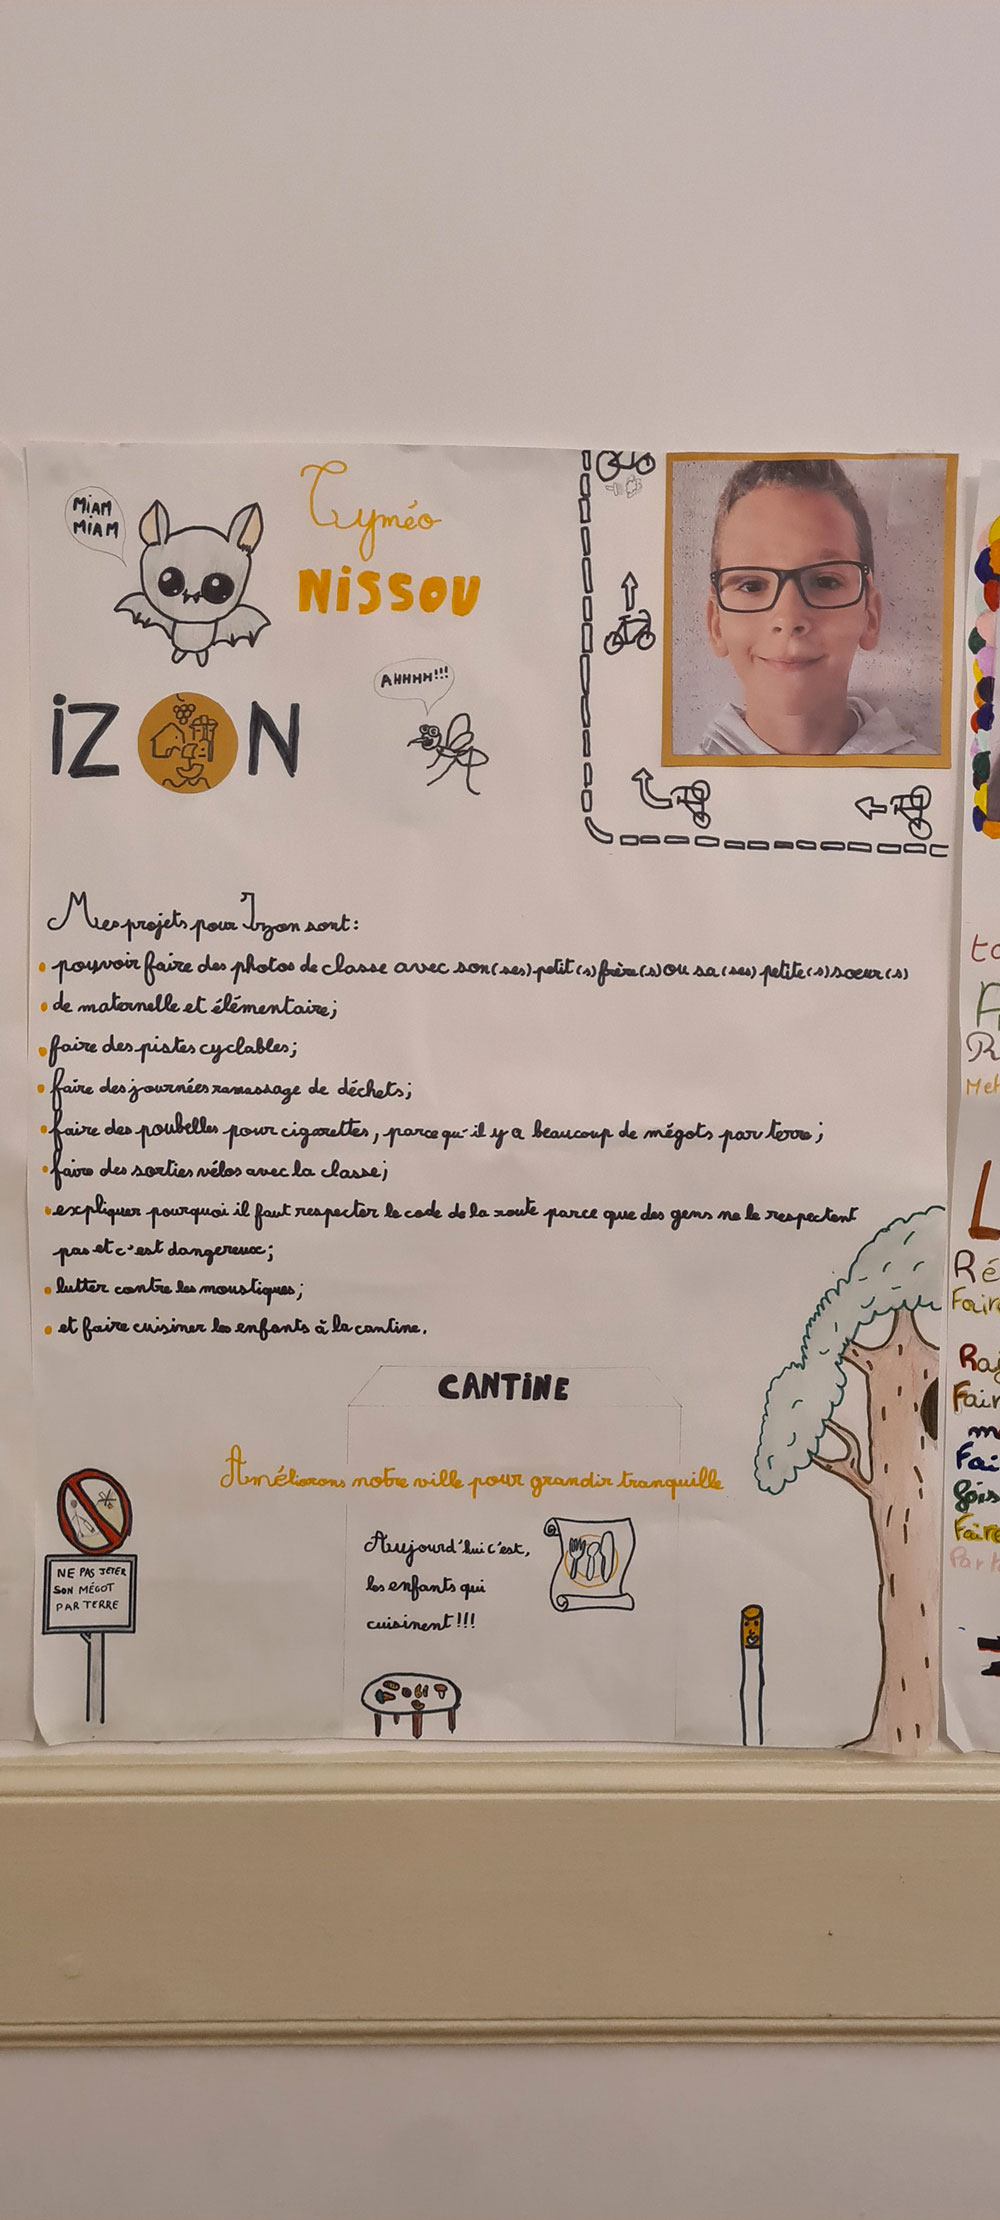 MIAM
MIAM
Tyméo
NiSSOU
AHHHH!!!
iZON
Mes projets pour Izon sont:
• pouvoir faire des photos de classe avec son(ses) petit(s) frère(s) ou sa(ses) petite(s) sœur(s)
• de maternelle et élémentaire;
• faire des pistes cyclables;
• faire des journées ramassage de déchets;
• faire des poubelles pour cigarettes, parce qu'il y a beaucoup de mégots par terre;
• faire des sorties vélos avec la classe;
• expliquer pourquoi il faut respecter le code de la route parce que des gens ne le respectent
pas et c'est dangereux;
• lutter contre les moustiques;
• et faire cuisiner les enfants à la cantine.
CANTiNE
Améliorons notre ville pour grandir tranquille
Aujourd'hui c'est,
les enfants qui
cuisinent!!!
NE PAS JETER
SON MÉGOT
PAR TERRE
Ré
Faire
Fair
Fai
Faire